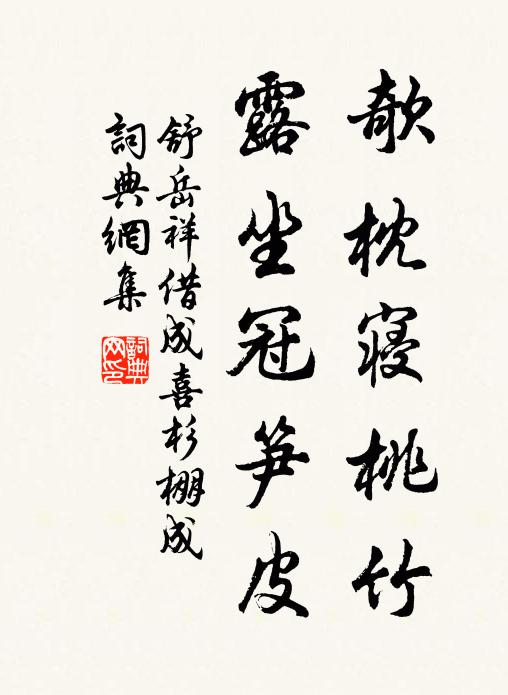 欹枕寝桃竹
露坐冠笋皮
舒岳祥借成喜杉棚成
詞典網集
詞典网印